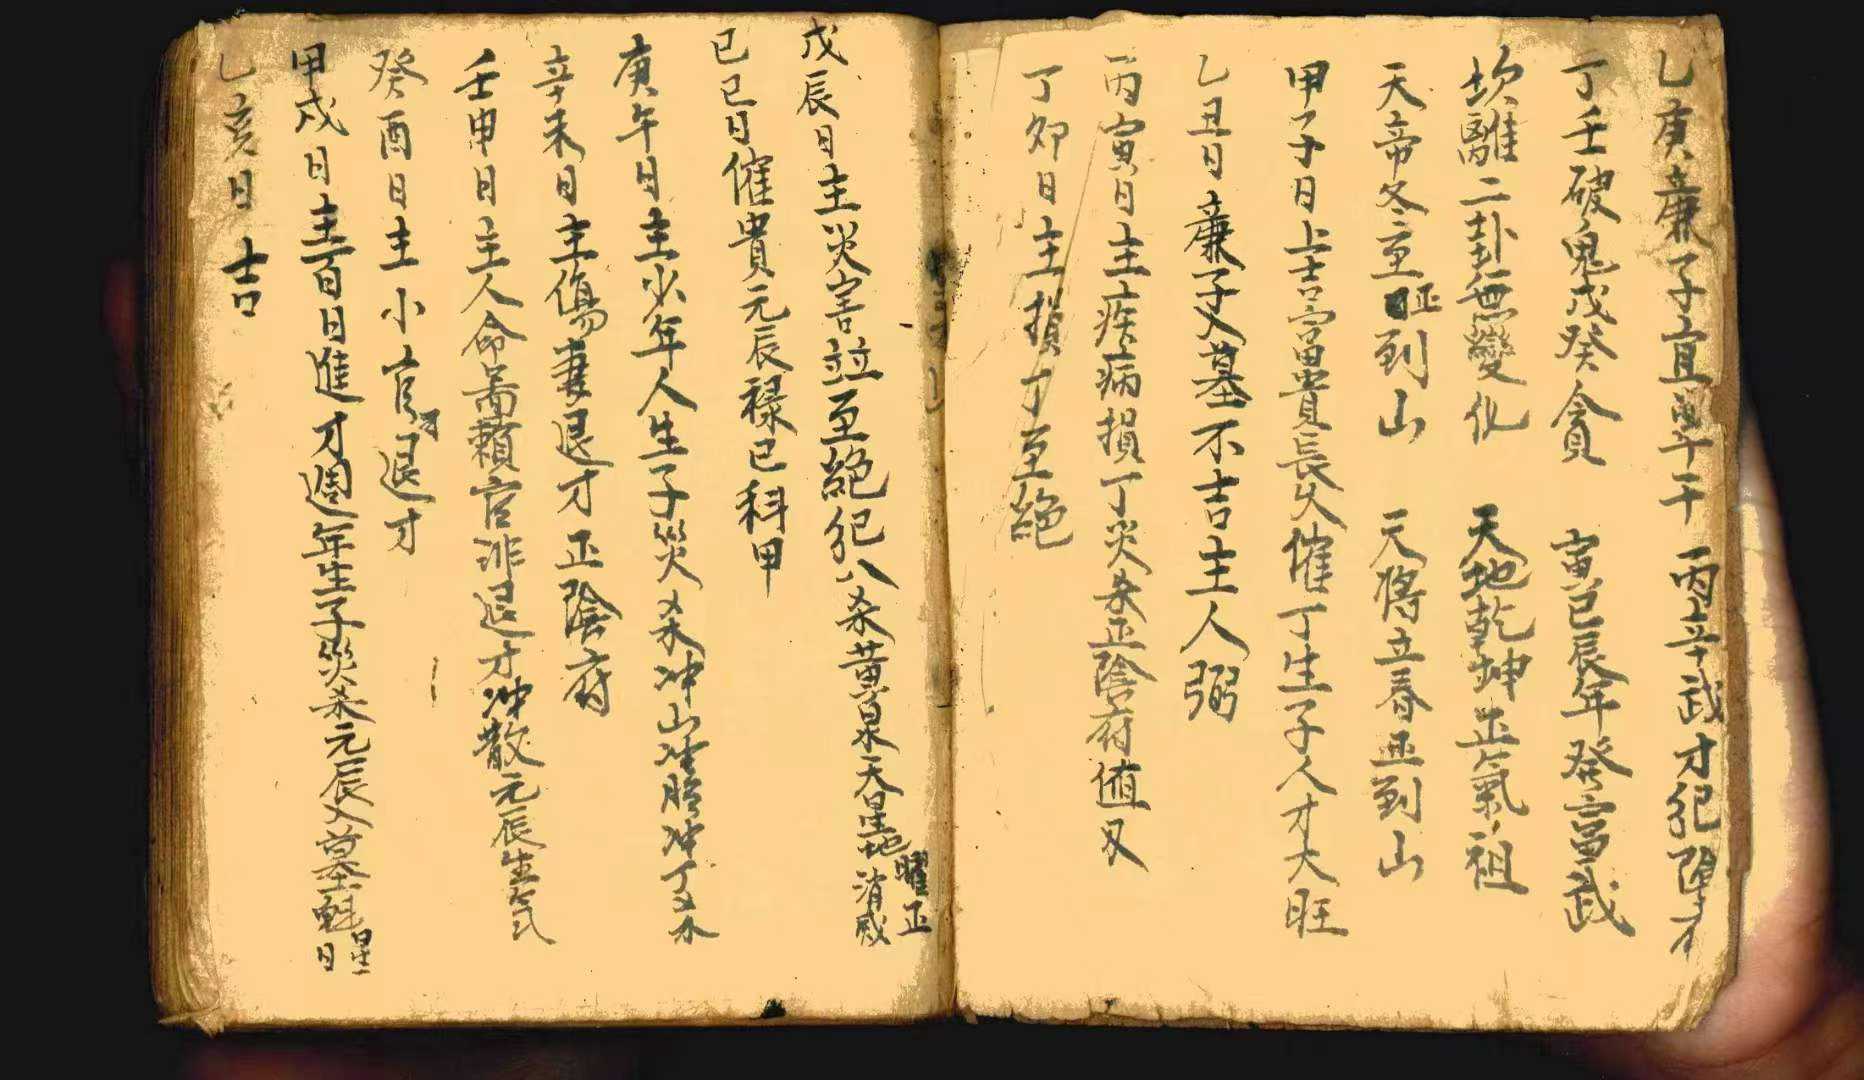 乙庚廉子宜 干 丙辛武才犯
丁壬破鬼戊癸貪 寅巳辰年發富武
坎離二卦無變化 天地乾坤正氣祖
天帝冬至 到山 天將立春 到山
甲子日上吉富貴長久催丁生子人才大旺
乙丑日廉子入墓不吉主人弱
丙寅日主疾病損丁災杀正陰府值
丁卯日主損丁至絕
戊辰日主災害並至絕犯八杀黄泉天星地曜正消滅
己巳日催貴元辰禄巳科甲
庚午日主少年人生子災 杀冲山 冲丁 杀
辛未日主傷妻退才正陰府
壬申日主人命 賴官非退才冲散元辰生気
癸酉日主小官 退才
甲戌日主百日進才週年生子災杀元辰入墓魁星日
乙亥日吉